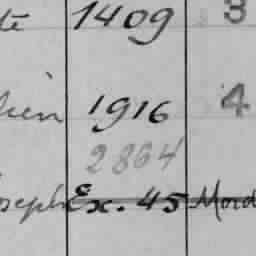 té 1409 3
lien 1916 4
2864
oseph Ex. 45 Mord